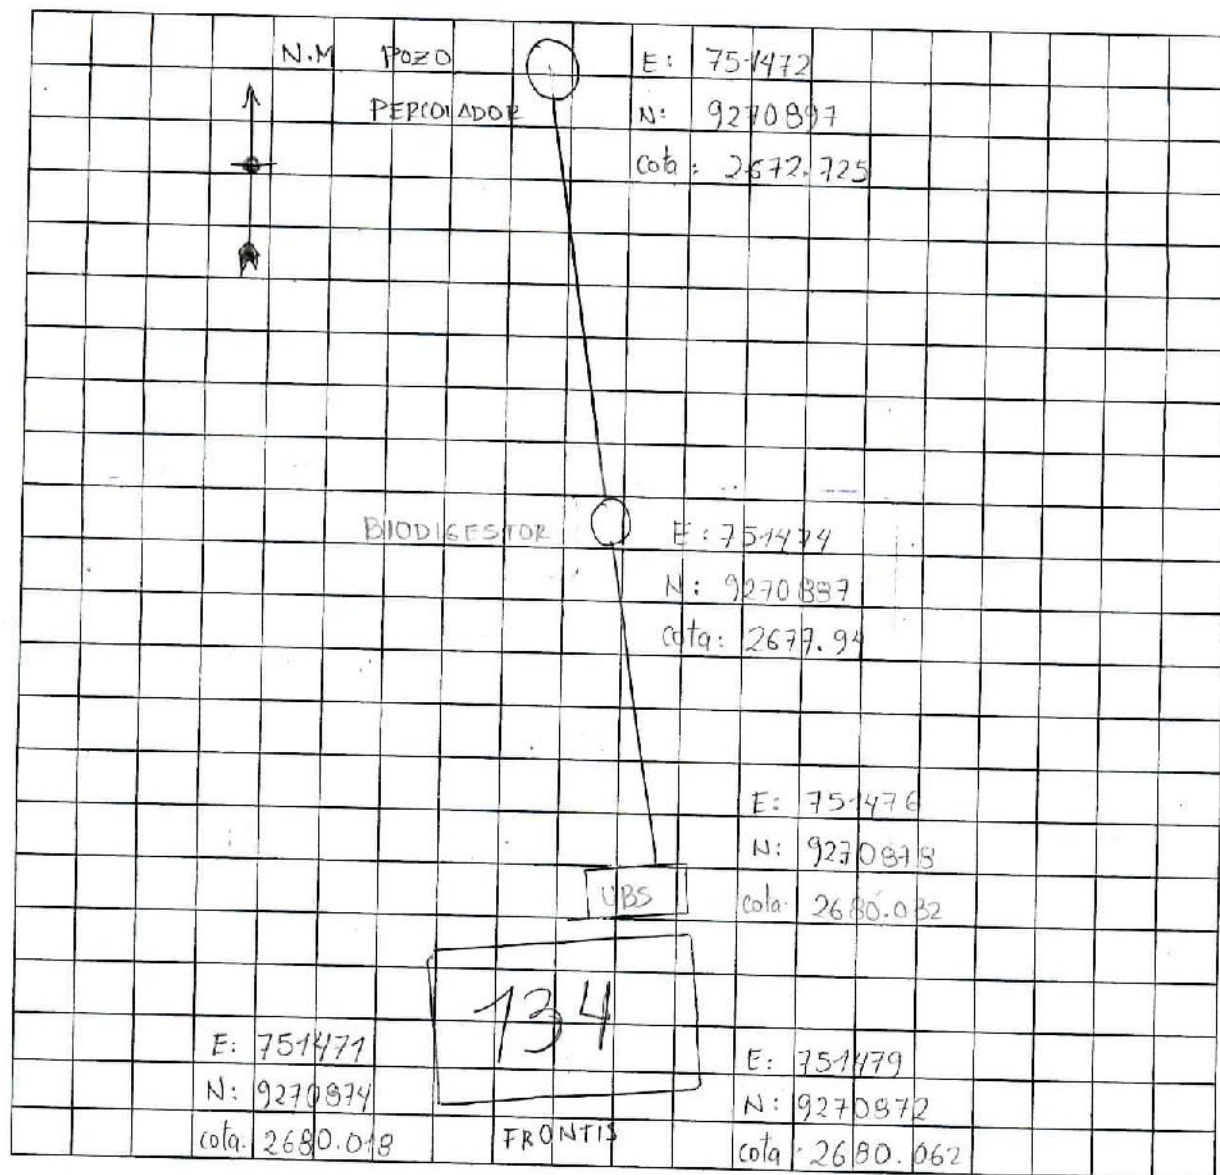 N.M POZO
PERCOLADOR
E: 751472
N: 9270897
cota: 2672.725
BIODIGESTOR
E: 751474
N: 9270887
cota: 2677.94
E: 751476
N: 9270878
cota: 2680.032
UBS
134
E: 751471
N: 9270874
cota: 2680.018
E: 751479
N: 9270872
cota: 2680.062
FRONTIS